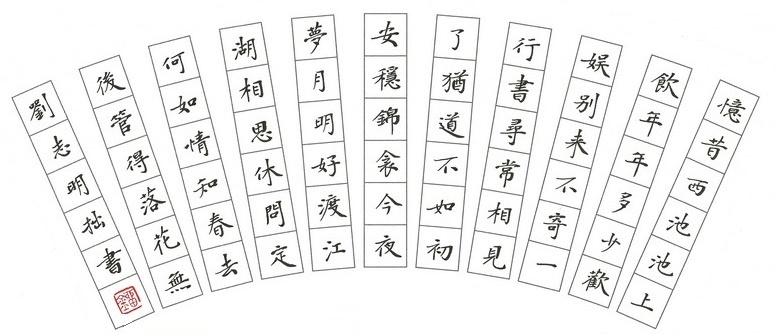 憶昔西池池上
飲年年多少歡
娱别来不寄一
行書尋常相見
了猶道不如初
安穩錦衾今夜
夢月明好渡江
湖相思休問定
何如情知春去
後管得落花無
劉志明拙書